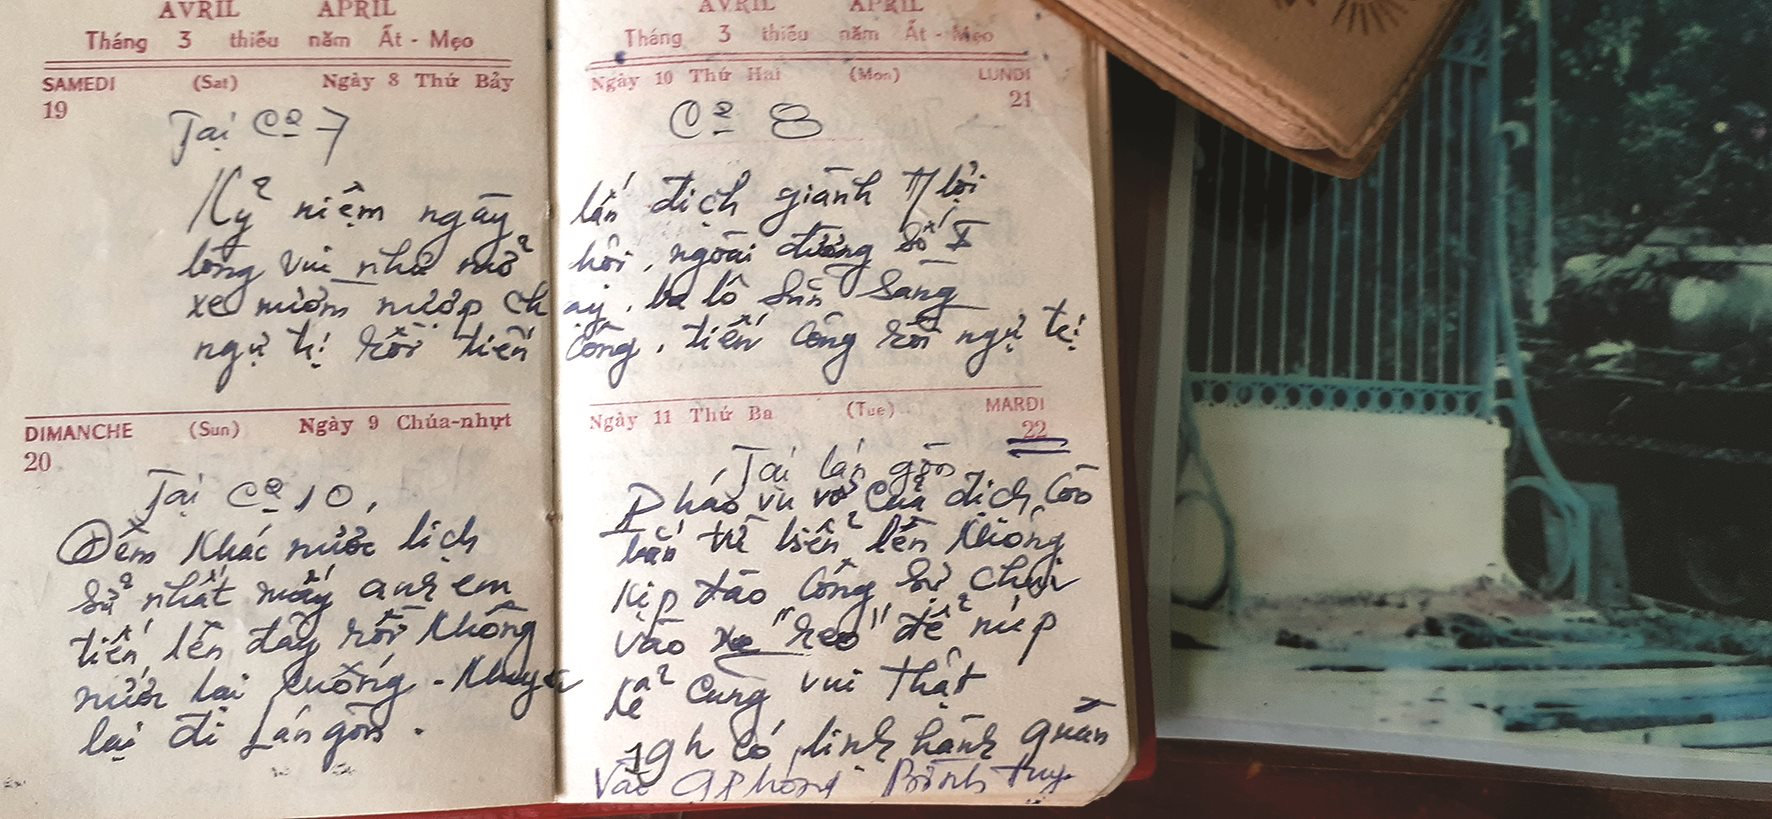 AVRIL APRIL
Tháng 3 thiếu năm Ất - Mẹo
SAMEDI (Sat) Ngày 8 Thứ Bảy
19
Tại Cº 7
Kỷ niệm ngày
lòng vui như mở
xe nườm nượp ch
ngự trị rồi tiến
DIMANCHE (Sun) Ngày 9 Chúa-nhựt
20
Tại Cº 10,
Đêm khác nước lịch
sử nhất mấy anh em
tiến lên đây rồi không
nước lại xuống - Khuya
lại đi Lán gòn.
AVRIL APRIL
Tháng 3 thiếu năm Ất - Mẹo
Ngày 10 Thứ Hai (Mon) LUNDI
21
Cº 8
lấn địch giành lợi
hôi, ngoài đường số
ạy, ba lô sẵn sàng
công, tiến công rồi ngự trị
Ngày 11 Thứ Ba (Tue) MARDI
22
Tại lán gòn
Pháo vu vơ của địch còn
bắn từ biển lên không
kịp đào công sự chui
vào xe "reo" để núp
kể cũng vui thật
19h có lịnh hành quân
vào phòng Bình Tuy